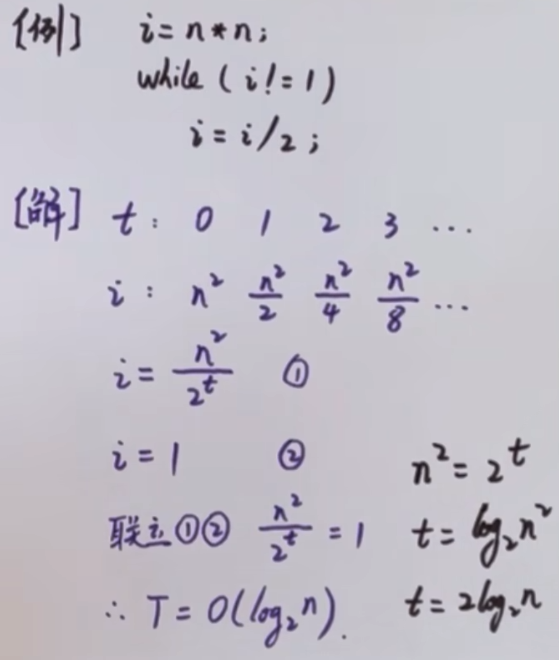 [例] i = n * n;
while ( i != 1 )
i = i / 2;
[解] t : 0 1 2 3 ...
i : n² n²/2 n²/4 n²/8 ...
i = n²/2^t ①
i = 1 ②
联立①② n²/2^t = 1
∴ T = O(log₂n).
n² = 2^t
t = log₂n²
t = 2log₂n